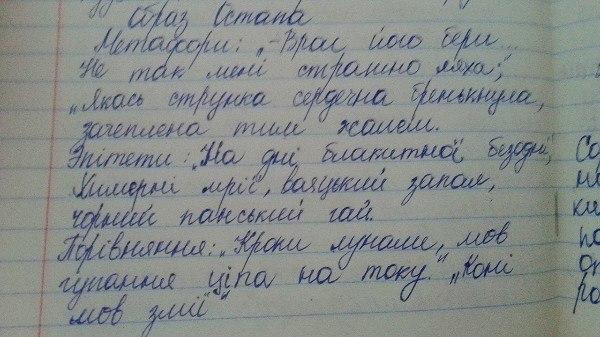 Образ Остапа
Метафори: „-Враг його бери...
Не так мені страшно ляха;"
„Якась струнка сердечна бренькнула,
зачеплена тим жалем.
Епітети: „На дні блакитної безодні,
Химерні мрії, вояцький запал,
чорний панський гай.
Порівняння: „Кроки лунали, мов
гупання ціпа на току." „Коні
мов змії"
Со
но
ки
по
оп
ро